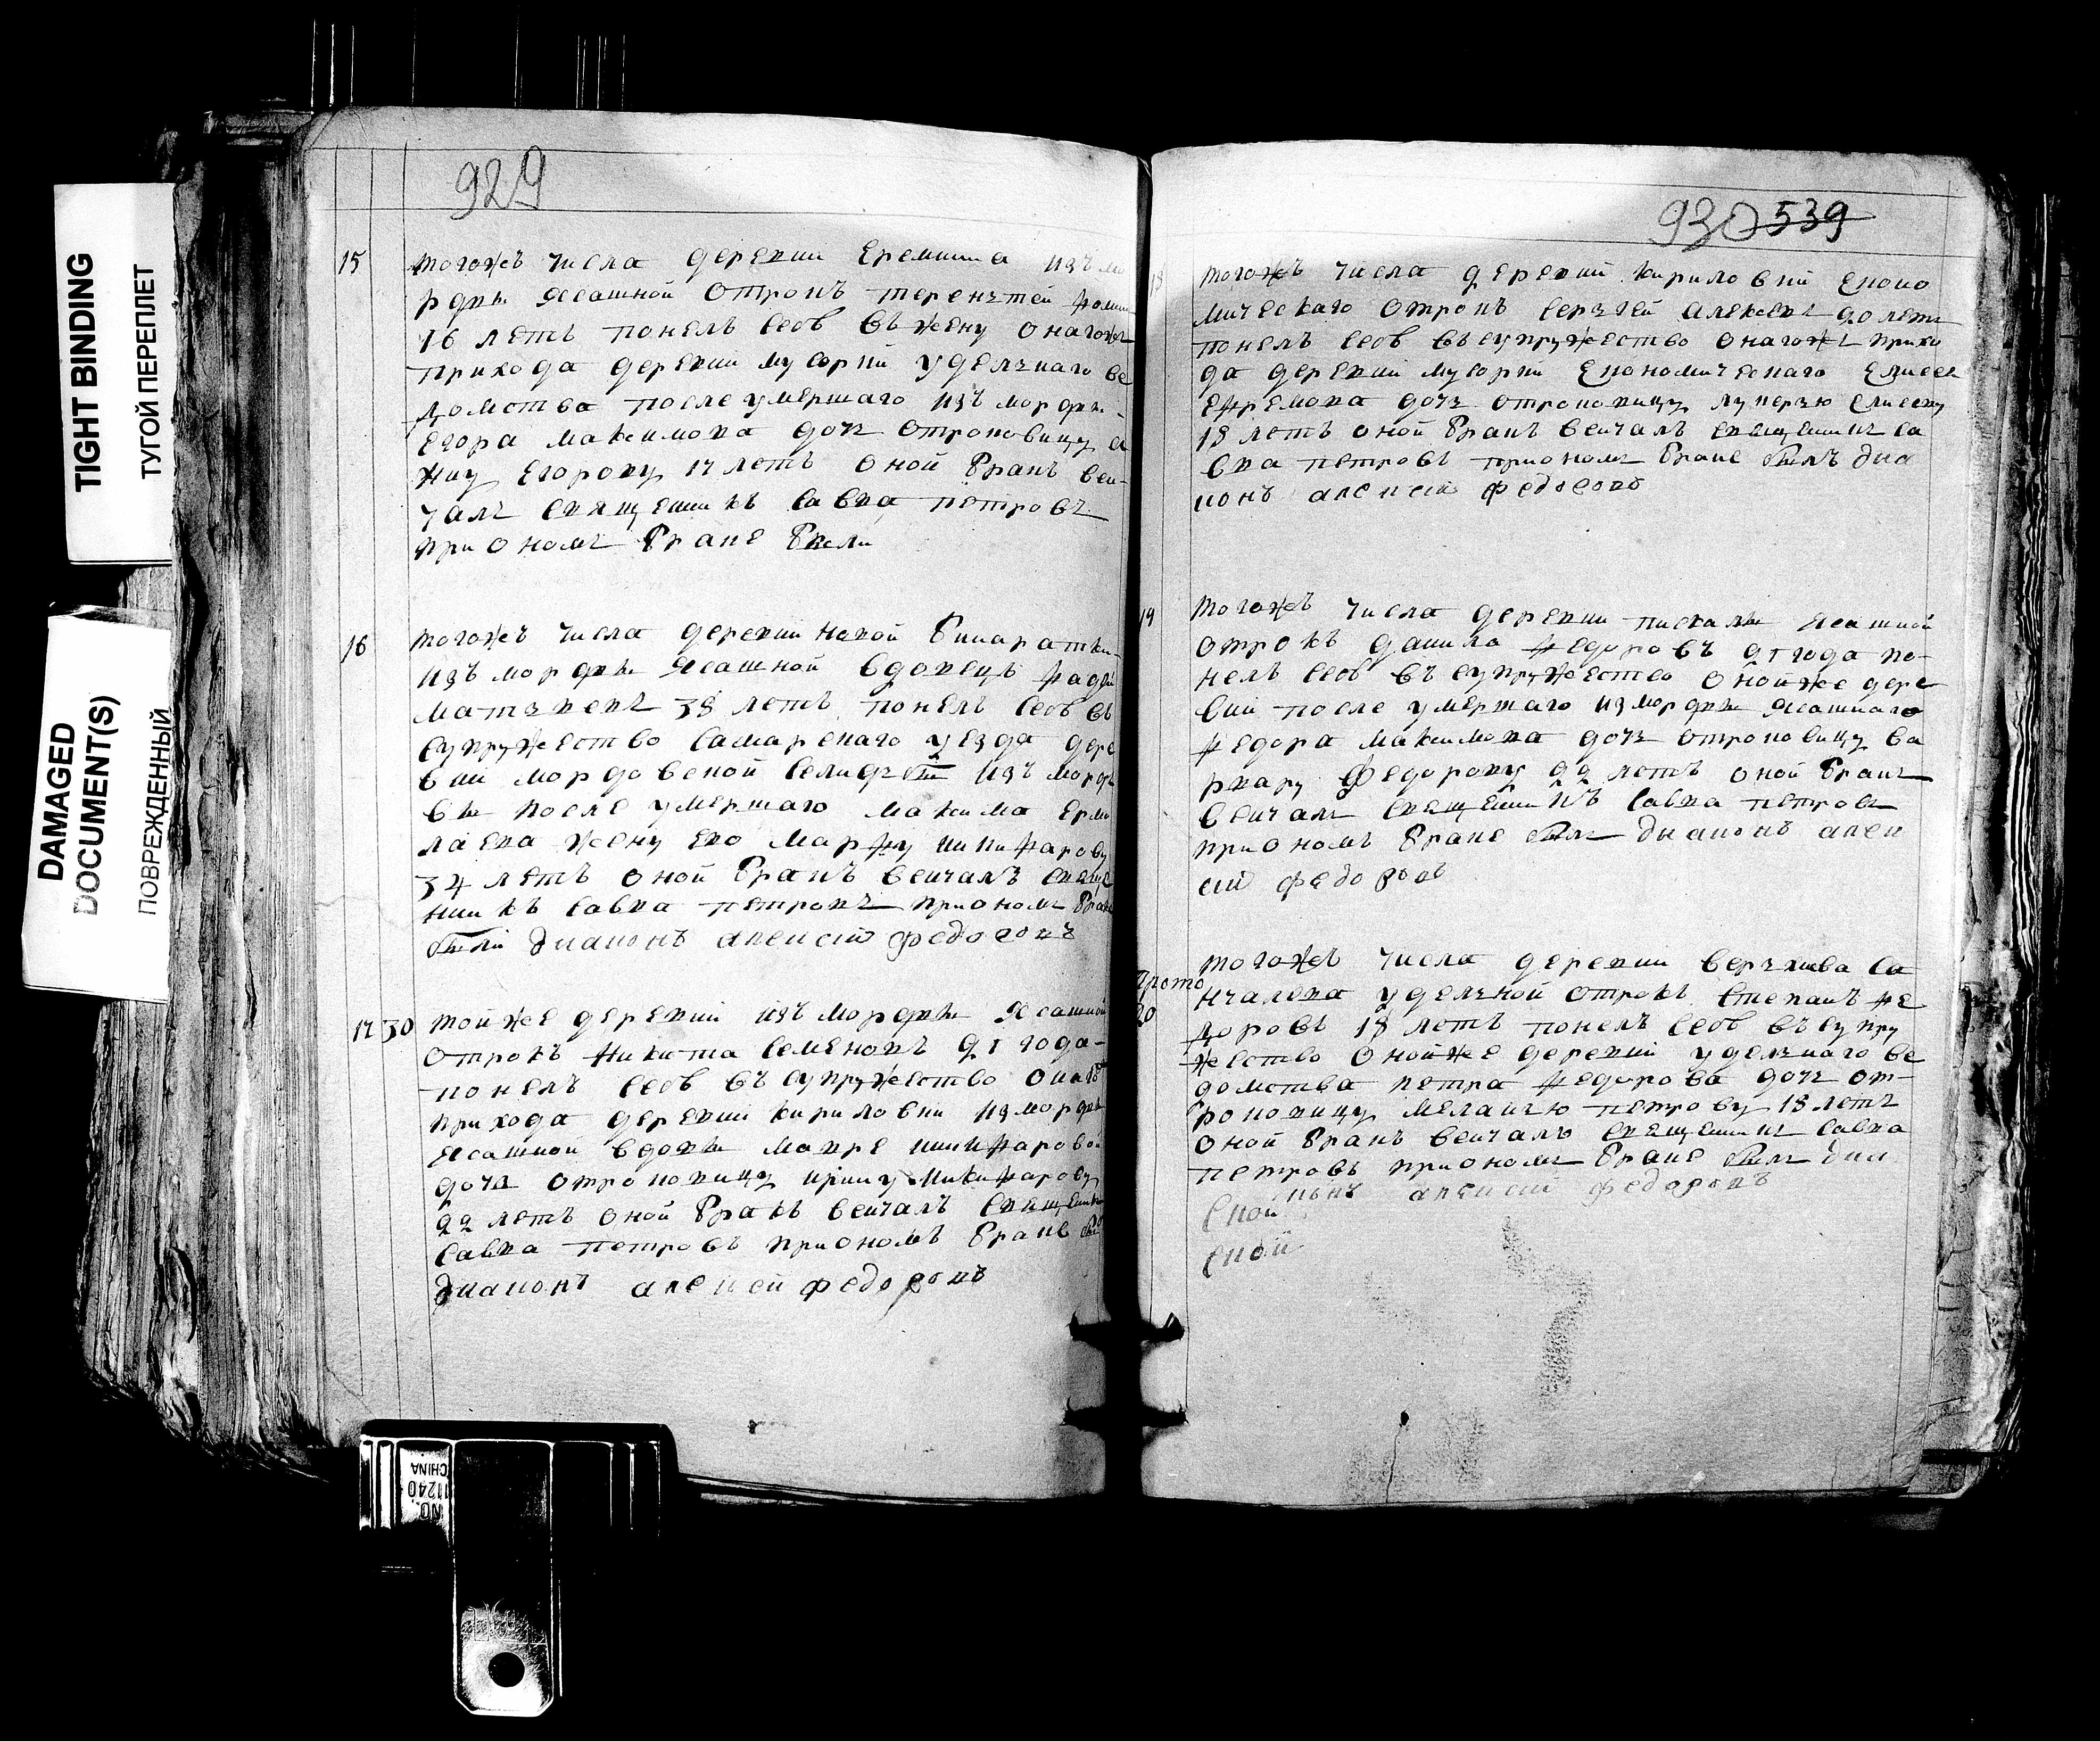 TIGHT BINDING
ТУГОЙ ПЕРЕПЛЕТ
DAMAGED
DOCUMENT(S)
ПОВРЕЖДЕННЫЙ
929
15 тогожъ числа деревни Еремкина изъ мо
рдвы ясашной отрокъ терентей
16 летъ понелъ себѣ въ жену онагожъ
прихода деревни мусорки уделнаго ве
домства после умершаго изъ мордвы
Егора максимова дочь отроковицу а
нну Егорову 17 летъ оной бракъ вен
чалъ священникъ савва петровъ
при ономъ браке
16 тогожъ числа деревни новой бинаратки
изъ мордвы ясашной вдовецъ фадей
матвеевъ 38 летъ понелъ себѣ въ
супружество самарскаго уезда дере
вни мордовской селидбы изъ морд
вы после умершаго максима ермо
лаева жену ево марфу никифарову
34 летъ оной бракъ венчалъ свяще
нникъ савва петровъ при ономъ браке
были диаконъ алексей федоровъ
17 30 той же деревни изъ мордвы ясашной
отрокъ никита семеновъ 21 года
понелъ себѣ въ супружество
прихода деревни кириловки изъ мордвы
ясашной вдовы мавре никифаровой
дочь отроковицу ирину никифарову
22 летъ оной бракъ венчалъ священникъ
савва петровъ при ономъ браке
диаконъ алексей федоровъ
930 539
тогожъ числа деревни кириловки Еконо
мическаго отрокъ сергей алексеевъ 20 летъ
понелъ себѣ въ супружество онагожъ прихо
да деревни мусорки Економическаго Елисея
Ефремова дочь отроковицу лукерью елисееву
18 летъ оной бракъ венчалъ священникъ са
вва петровъ при ономъ браке былъ диа
конъ алексей федоровъ
19 тогожъ числа деревни пискалы ясашной
отрокъ данила федоровъ 21 года по
нелъ себѣ въ супружество оной же дере
вни после умершаго изъ мордвы ясашнаго
федора максимова дочь отроковицу ва
рвару федорову 22 летъ оной бракъ
венчалъ священникъ савва петровъ
при ономъ браке былъ диаконъ алек
сей федоровъ
20 тогожъ числа деревни верхнева са
нчалова уделной отрокъ степанъ фе
доровъ 18 летъ понелъ себѣ въ супру
жество оной же деревни уделнаго ве
домства петра федорова дочь от
роковицу меланью петрову 18 летъ
оной бракъ венчалъ священникъ савва
петровъ при ономъ браке былъ диа
конъ алексей федоровъ
NO.
11240
CHINA